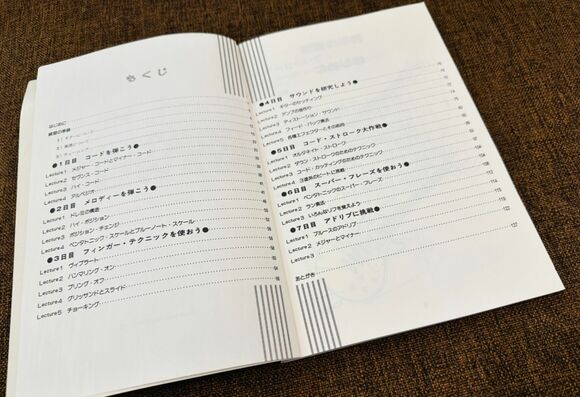 もくじ
はじめに
練習の準備
●1日目 コードを弾こう●
Lecture1 メジャー・コードとマイナー・コード
Lecture2 セブンス・コード
Lecture3 ハイ・コード
Lecture4 アルペジオ
●2日目 メロディーを弾こう●
Lecture1 ドレミの構造
Lecture2 ハイ・ポジション
Lecture3 ポジション・チェンジ
Lecture4 ペンタトニック・スケールとブルーノート・スケール
●3日目 フィンガー・テクニックを使おう●
Lecture1 ヴィブラート
Lecture2 ハンマリング・オン
Lecture3 プリング・オフ
Lecture4 グリッサンドとスライド
Lecture5 チョーキング
●4日目 サウンドを研究しよう●
Lecture1 ギターのセッティング
Lecture2 アンプの音作り
Lecture3 ディストーション・サウンド
Lecture4 フィード・バック奏法
Lecture5 各種エフェクターとその応用
●5日目 コード・ストローク大作戦●
Lecture1 オルタネイト・ストローク
Lecture2 ダウン・ストロークのためのテクニック
Lecture3 コード・カッティングのためのテクニック
Lecture4 3連系のビートに挑戦!
●6日目 スーパー・フレーズを使おう●
Lecture1 ペンタトニックのスーパー・フレーズ
Lecture2 ラン奏法
Lecture3 いろんなリフを覚えよう
●7日目 アドリブに挑戦●
Lecture1 ブルースのアドリブ
Lecture2 メジャーとマイナー
Lecture3
あとがき